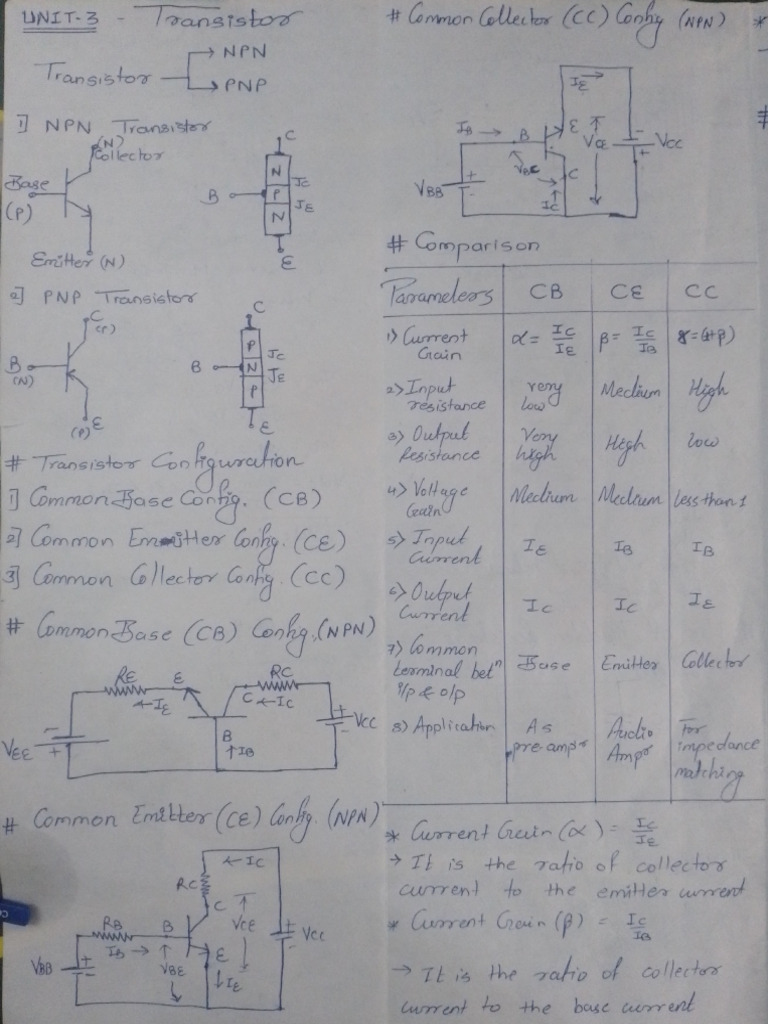 UNIT-3 - Transistor
Transistor → NPN
→ PNP
1] NPN Transistor
(N)
Collector
Base
(P)
Emitter (N)
C
N
P
N
JC
JE
B
E
2] PNP Transistor
C
(P)
B
(N)
(P) E
C
P
N
P
JC
JE
B
E
# Transistor Configuration
1] Common Base Config. (CB)
2] Common Emitter Config. (CE)
3] Common Collector Config. (CC)
# Common Base (CB) Config. (NPN)
RE E RC
← IE C ← IC
VEE - + B ↑ IB + - VCC
# Common Emitter (CE) Config. (NPN)
← IC
RC
C
RB B VCE + - VCC
IB → E
VBB + - VBE ↓ IE
# Common Collector (CC) Config (NPN)
IE →
IB → B E VCE - + VCC
VBC
VBB + - C
IC ↑
# Comparison
Parameters CB CE CC
1) Current Gain α = IC/IE β = IC/IB γ = (1+β)
2) Input resistance very low Medium High
3) Output Resistance Very high High low
4) Voltage Gain Medium Medium less than 1
5) Input Current IE IB IB
6) Output Current IC IC IE
7) Common terminal betⁿ i/p & o/p Base Emitter Collector
8) Application As pre-ampr Audio Ampr For impedance matching
* Current Gain (α) = IC/IE
→ It is the ratio of collector
current to the emitter current
* Current Gain (β) = IC/IB
→ It is the ratio of collector
current to the base current